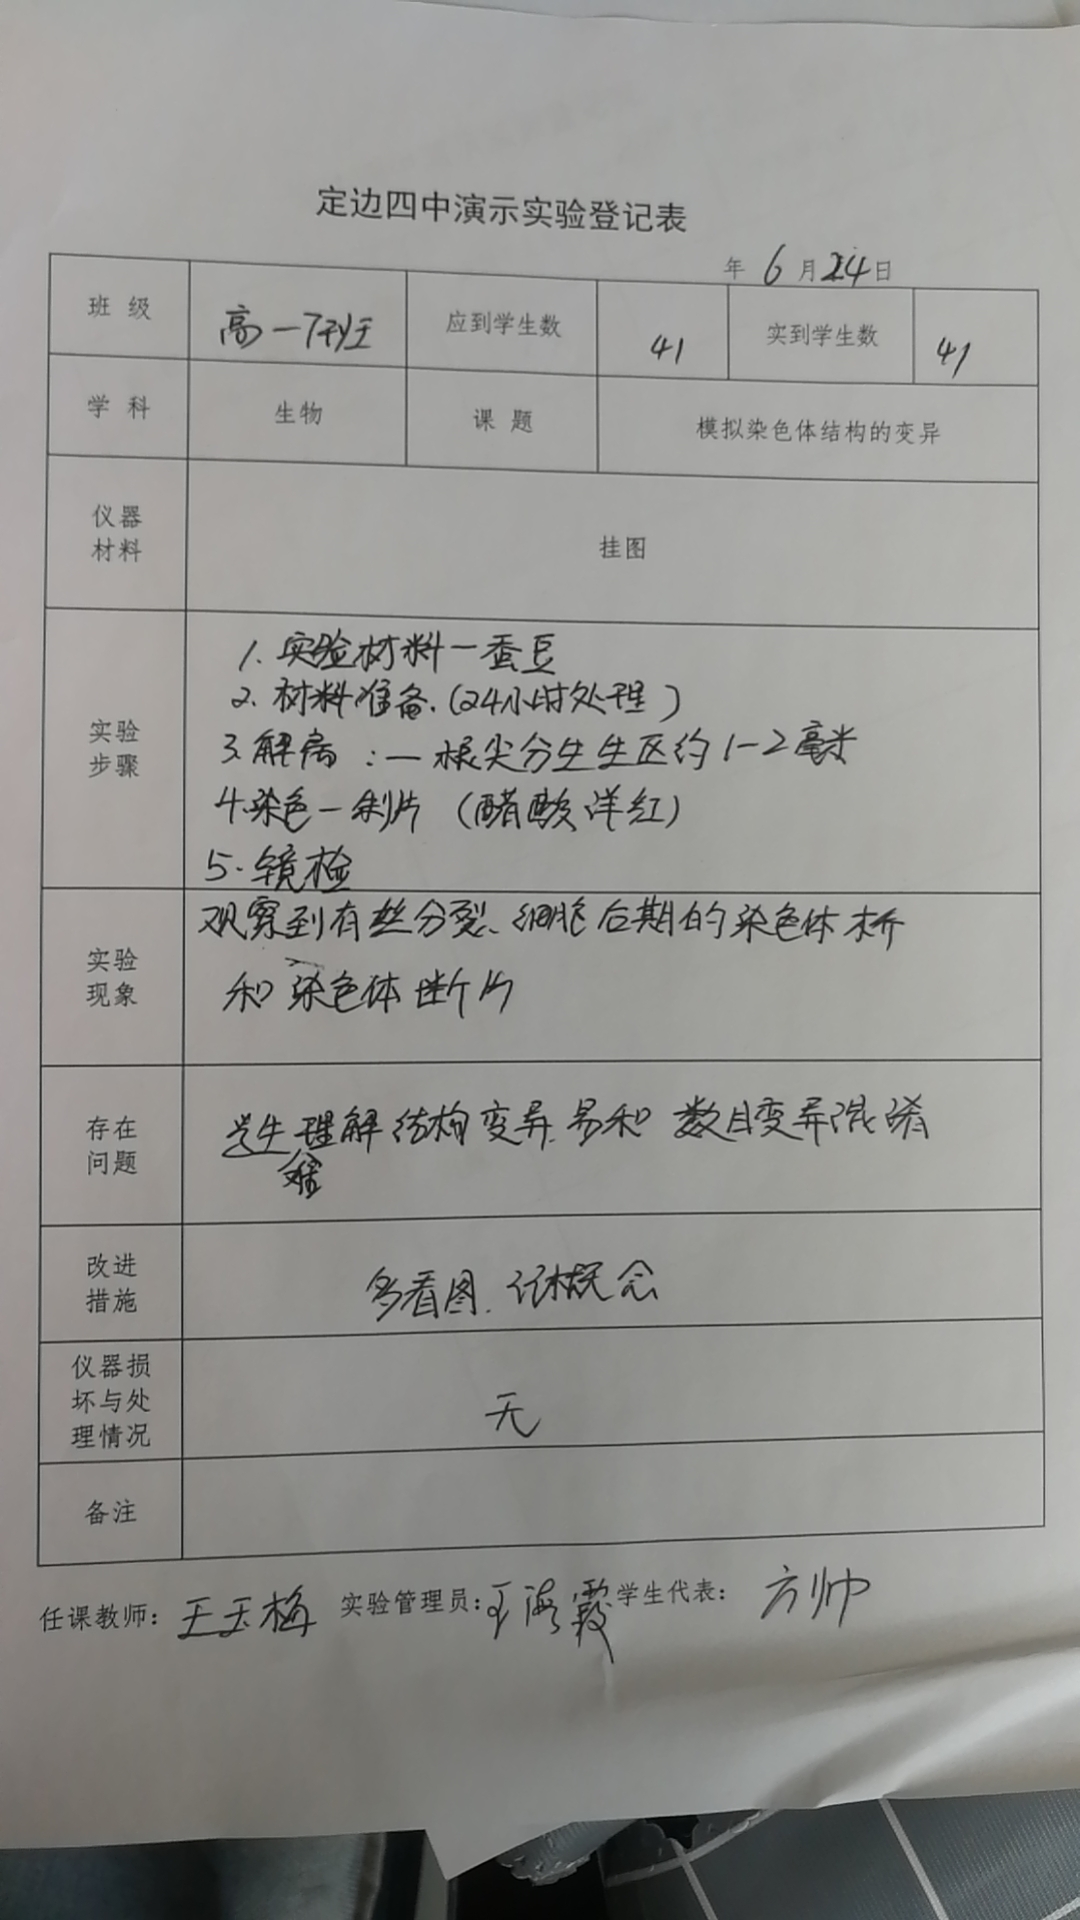 定边四中演示实验登记表
年 6 月 24 日
班 级 高一7班 应到学生数 41 实到学生数 41
学 科 生物 课 题 模拟染色体结构的变异
仪器
材料
挂图
实验
步骤
1. 实验材料一蚕豆
2. 材料准备.(24小时处理)
3 解离:一根尖分生生区约1-2毫米
4.染色一制片(醋酸洋红)
5.镜检
实验
现象
观察到有丝分裂、细胞后期的染色体桥
和染色体断片
存在
问题
学生理解结构变异.易和数目变异混淆
改进
措施
多看图.记概念
仪器损
坏与处
理情况
无
备注
任课教师:王玉梅 实验管理员:王海霞 学生代表:方帅